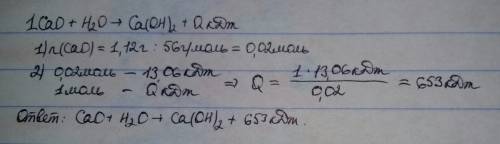 1.CaO + H₂O → Ca(OH)₂ + Q кДж
1) n(CaO) = 1,12г : 56г/моль = 0,02моль
2) 0,02моль – 13,06кДж ⇒ Q = 1·13,06кДж / 0,02 = 653кДж
1моль – QкДж
Ответ: CaO + H₂O → Ca(OH)₂ + 653кДж.